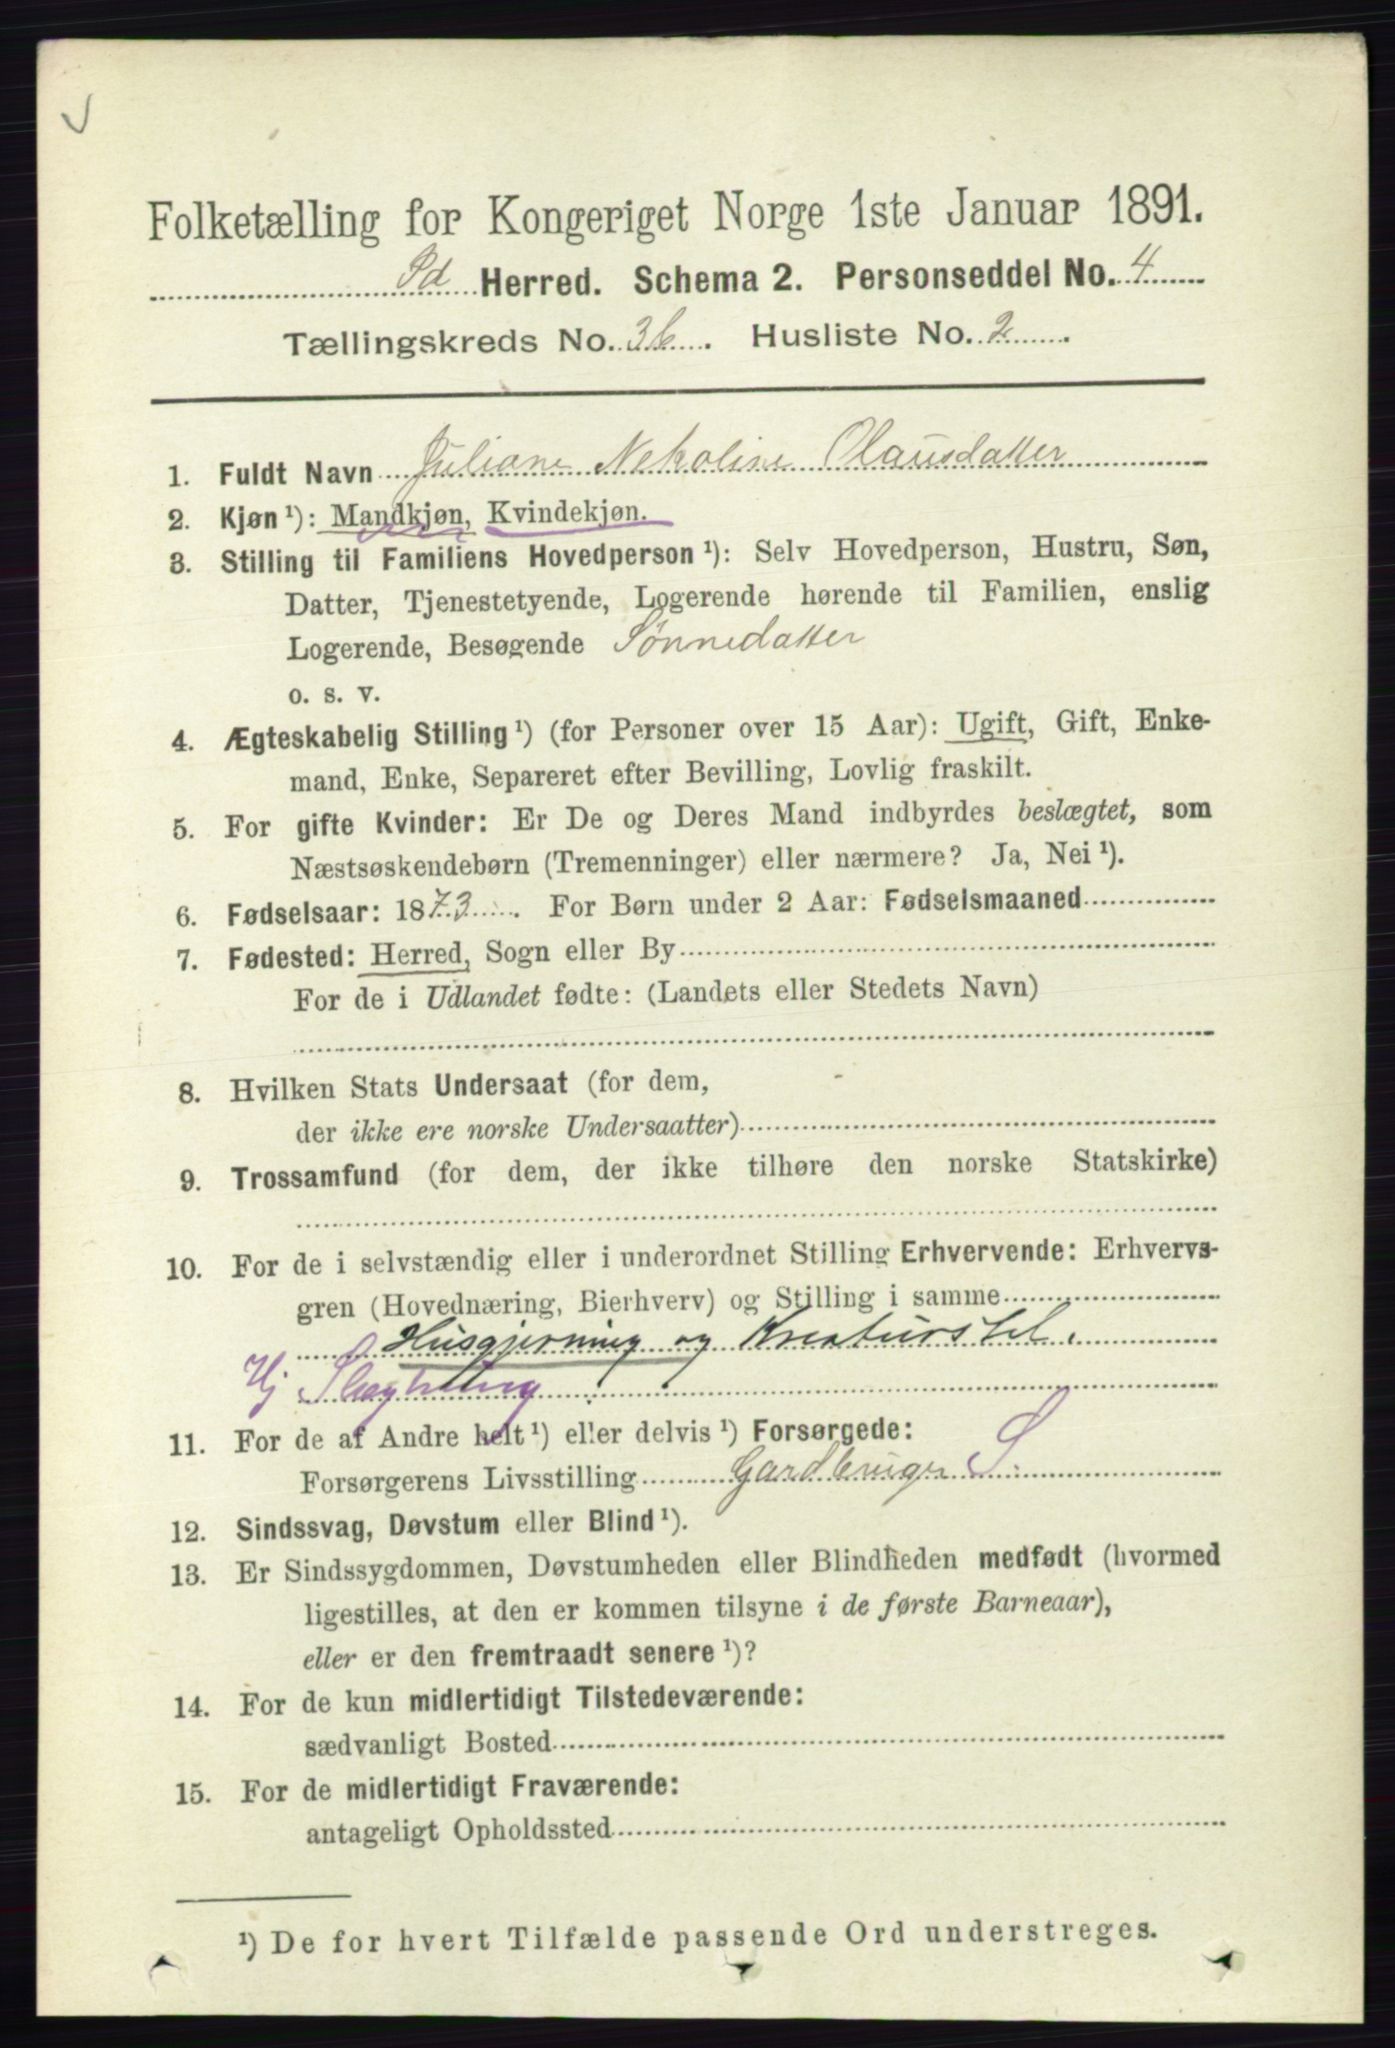 Folketælling for Kongeriget Norge 1ste Januar 1891.
Id Herred. Schema 2. Personseddel No. 4
Tællingskreds No. 3b. Husliste No. 2.
1. Fuldt Navn Juliane Nekoline Olausdatter
2. Kjøn ¹): Mandkjøn, Kvindekjøn.
3. Stilling til Familiens Hovedperson ¹): Selv Hovedperson, Hustru, Søn,
Datter, Tjenestetyende, Logerende hørende til Familien, enslig
Logerende, Besøgende Sønnedatter
o. s. v.
4. Ægteskabelig Stilling ¹) (for Personer over 15 Aar): Ugift, Gift, Enke-
mand, Enke, Separeret efter Bevilling, Lovlig fraskilt.
5. For gifte Kvinder: Er De og Deres Mand indbyrdes beslægtet, som
Næstsøskendebørn (Tremenninger) eller nærmere? Ja, Nei ¹).
6. Fødselsaar: 1873. For Børn under 2 Aar: Fødselsmaaned
7. Fødested: Herred, Sogn eller By
For de i Udlandet fødte: (Landets eller Stedets Navn)
8. Hvilken Stats Undersaat (for dem,
der ikke ere norske Undersaatter)
9. Trossamfund (for dem, der ikke tilhøre den norske Statskirke)
10. For de i selvstændig eller i underordnet Stilling Erhvervende: Erhvervs-
gren (Hovednæring, Bierhverv) og Stilling i samme
Husgjerning og Kreaturstel.
Hj Slægtning
11. For de af Andre helt ¹) eller delvis ¹) Forsørgede:
Forsørgerens Livsstilling Gardbruger S
12. Sindssvag, Døvstum eller Blind ¹).
13. Er Sindssygdommen, Døvstumheden eller Blindheden medfødt (hvormed
ligestilles, at den er kommen tilsyne i de første Barneaar),
eller er den fremtraadt senere ¹)?
14. For de kun midlertidigt Tilstedeværende:
sædvanligt Bosted
15. For de midlertidigt Fraværende:
antageligt Opholdssted
¹) De for hvert Tilfælde passende Ord understreges.